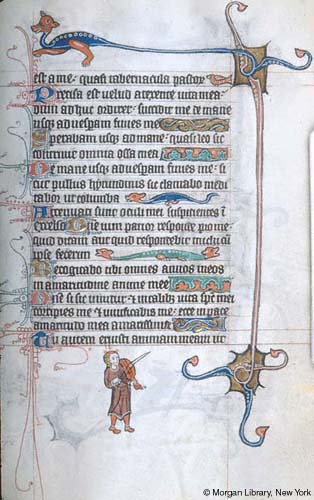 est a me · quasi tabernacula pastoꝝ
Precisa est velud a texente vita mea ·
dum adhuc ordirer · succidit me de mane
usqꝫ ad uesꝑam finies me
Sperabam usqꝫ ad mane · quasi leo sic
contriuit omnia ossa mea
De mane usqꝫ ad uesꝑam finies me · si
cut pullus hyrundinis sic clamabo medi
tabor ut columba
Attenuati sunt oculi mei suspicientes ī
excelso · Dñe uim patior responde pro me ·
quid dicam aut quid respondebit michi cū
ipse fecerim
Recogitabo tibi omnes annos meos
in amaritudine anime mee
Dñe si sic uiuitur · et in talibꝫ uita sp̄c mei
corripies me et uiuificabis me · ecce in pace
amaritudo mea amarissima
Tu autem eruisti animam meam ut
© Morgan Library, New York